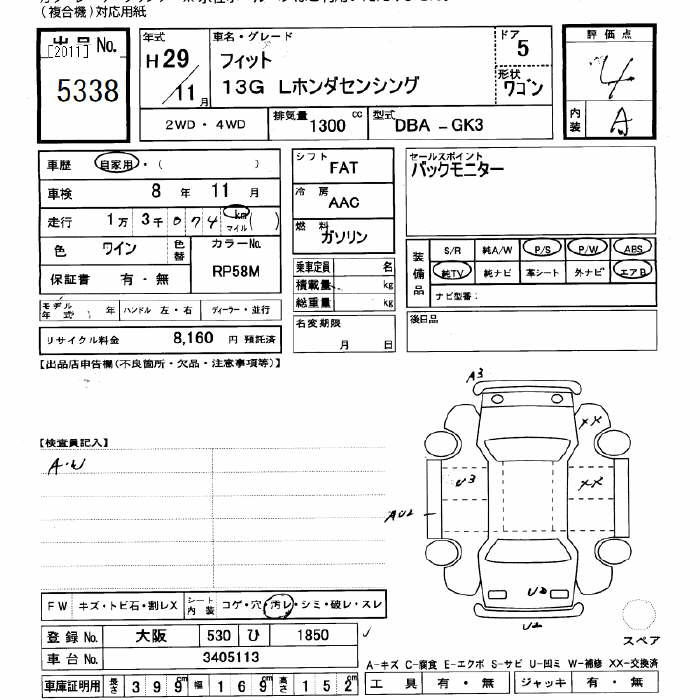 (複合機)対応用紙
出品 No.
[2011]
5338
年式
H29/11月
車名・グレード
フィット
13G Lホンダセンシング
ドア
5
形状
ワゴン
評価点
4
内装
A
2WD・4WD
排気量 1300 cc
型式 DBA-GK3
車歴 自家用・( )
車検 8年 11月
走行 1万3千074 km マイル ( )
色 ワイン 色替
カラーNo. RP58M
保証書 有・無
モデル年式 年 ハンドル 左・右 ディーラー・並行
リサイクル料金 8,160 円 預託済
シフト FAT
冷房 AAC
燃料 ガソリン
乗車定員 名
積載量 kg
総重量 kg
名変期限
月 日
セールスポイント
バックモニター
装備品
S/R 純A/W P/S P/W ABS
純TV 純ナビ 革シート 外ナビ エアB
ナビ型番:
後日品
【出品店申告欄(不良箇所・欠品・注意事項等)】
【検査員記入】
A・W
A3
XX
U3
XX
AU2
U2
U2
スペア
FW キズ・トビ石・割レX シート内装 コゲ・穴・汚レ・シミ・破レ・スレ
登録 No. 大阪 530 ひ 1850
車台 No. 3405113
車庫証明用 長さ 399cm 幅 169cm 高さ 152cm
A-キズ C-腐食 E-エクボ S-サビ U-凹ミ W-補修 XX-交換済
工具 有・無 ジャッキ 有・無